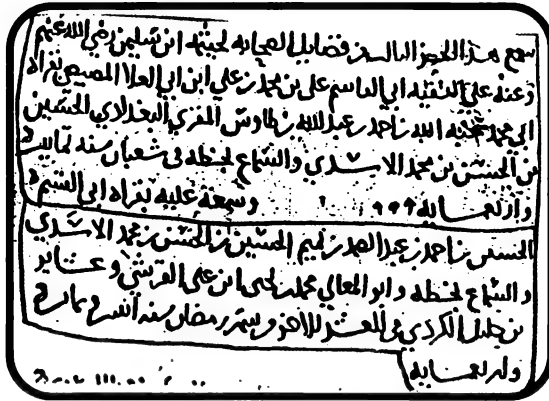 سمع هذا الجزء الثالث من فضايل الصحابه لخيثمه ابن سليمن رضي الله عنهم
وعنه علي الفقيه ابي القاسم علي بن محمد بن علي ابن ابي العلا المصيصي بقراه
ابي محمد هبة الله بن احمد بن عبد الله بن طاوس المقري البغدادي الحسين
بن الحسن بن محمد الاسدي والسماع بخطه في شعبان سنه ثمانين
واربعمايه وسمعه عليه بقراه ابي
الحسن بن احمد بن عبد الصمد بن تميم الحسين بن الحسن بن محمد الاسدي
والسماع بخطه وابو المعالي محمد بن يحيى ابن علي القرشي و
بن خليل الكردي في العشر الاخر من شهر رمضان سنه اثنين وثمانين
واربعمايه